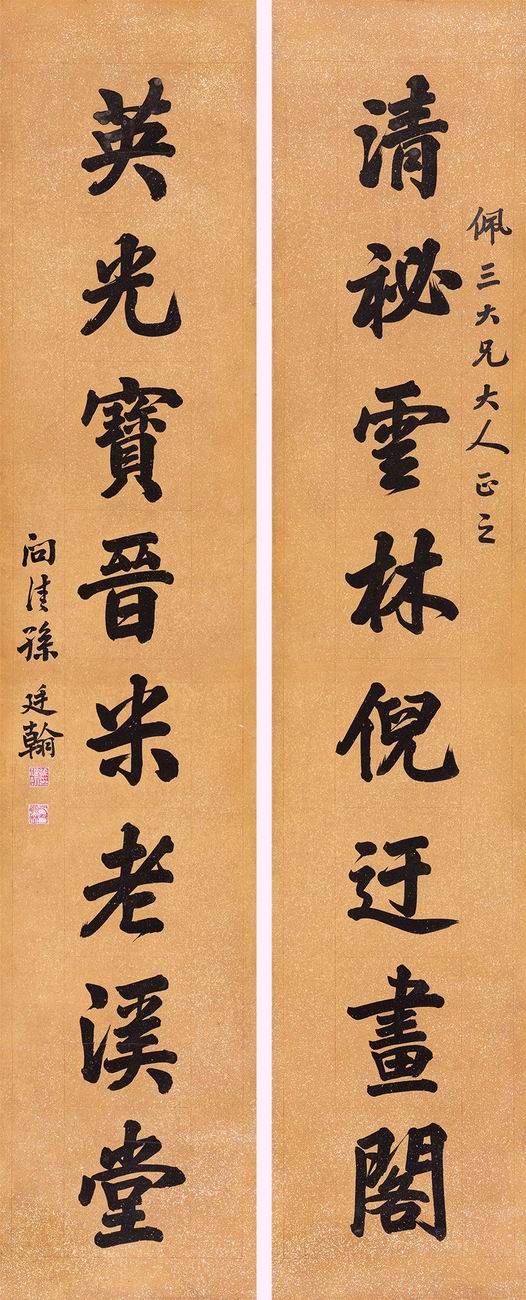 佩三大兄大人正之
清秘雲林倪迂畫閣
英光寶晉米老溪堂
問清孫廷翰